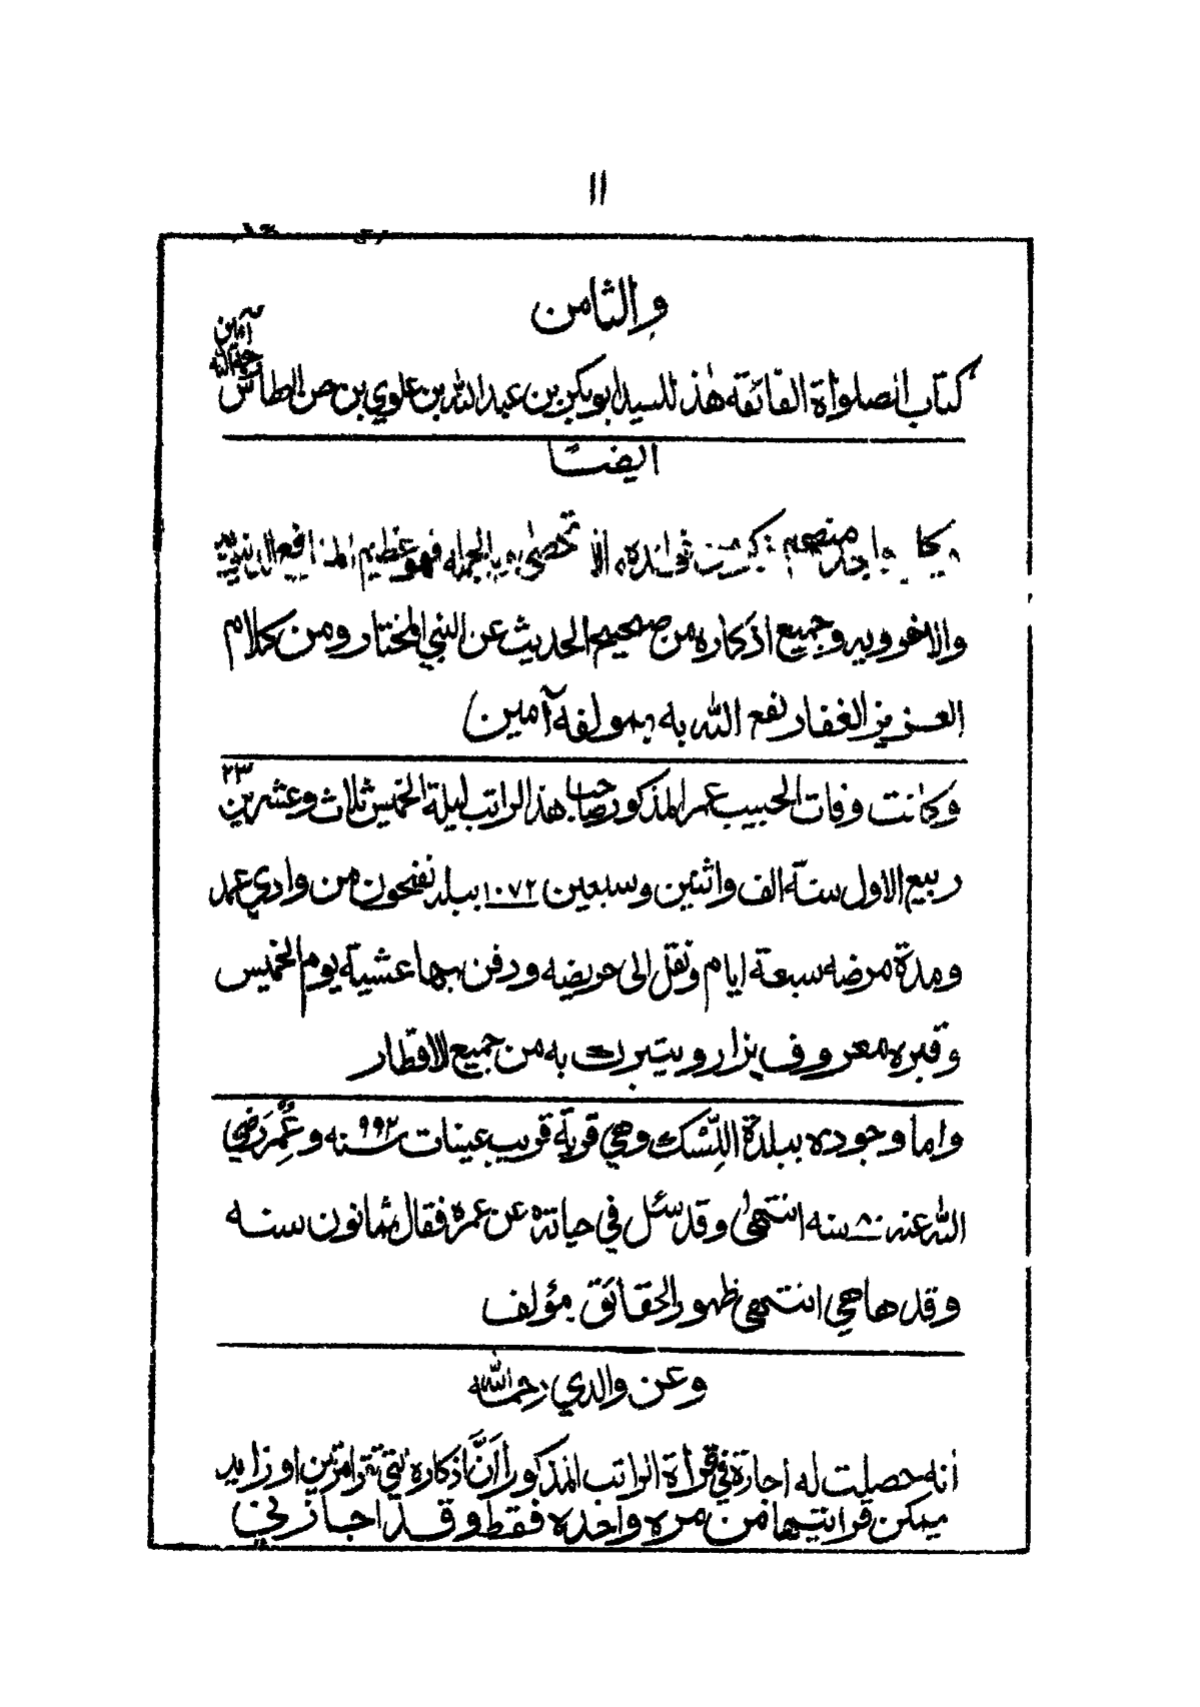 ١١
والثامن
آمين
رحمه الله
كتاب الصلواة الفائقة هٰذ للسيد ابوبكر بن عبد الله بن علوي بن حسن العطاس
ايضًا
كثيرت فوائده لا تحصى وبالجمله فهو عظيم المنافع الدنيويه
والاخرويه وجميع اذكاره من صحيح الحديث عن النبي المختار ومن كلام
العزيز الغفار نفع الله به بمولفه آمين
٢٣
وكانت وفات الحبيب عمر المذكور صاحب هذ الراتب ليلة الخميس ثلاث وعشرين
ربيع الاول سنة الف واثنين وسبعين ١٠٧٢ ببلد نفحون من وادي عمد
ومدة مرضه سبعة ايام ونقل الى حريضه ودفن بها عشية يوم الخميس
وقبره معروف يزار ويتبرك به من جميع الاقطار
واما وجوده ببلدة اللِّسك وهي قرية قريب عينات سنه ٩٩٢ وعُمِّرَ رضي
الله عنه ٨٠ سنه انتهى وقد سئل في حياته عن عمره فقال ثمانون سنه
وقدها هي انتهى ظهور الحقائق مؤلف
وعن والدي رحمه الله
أنه حصلت له اجازة في قرأة الراتب المذكور أَنَّ اذكاره التي تقرا مرتين او زايد
يمكن قرائتها من مره واحده فقط وقد اجازني